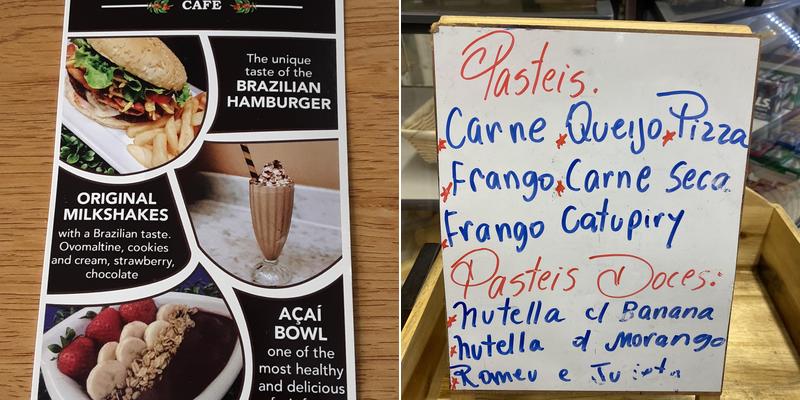 CAFE
The unique
taste of the
BRAZILIAN
HAMBURGER
ORIGINAL
MILKSHAKES
with a Brazilian taste.
Ovomaltine, cookies
and cream, strawberry,
chocolate
AÇAÍ
BOWL
one of the
most healthy
and delicious
Pasteis.
Carne Queijo Pizza
Frango Carne Seca
Frango Catupiry
Pasteis Doces:
Nutella c/ Banana
Nutella c/ Morango
Romeu e